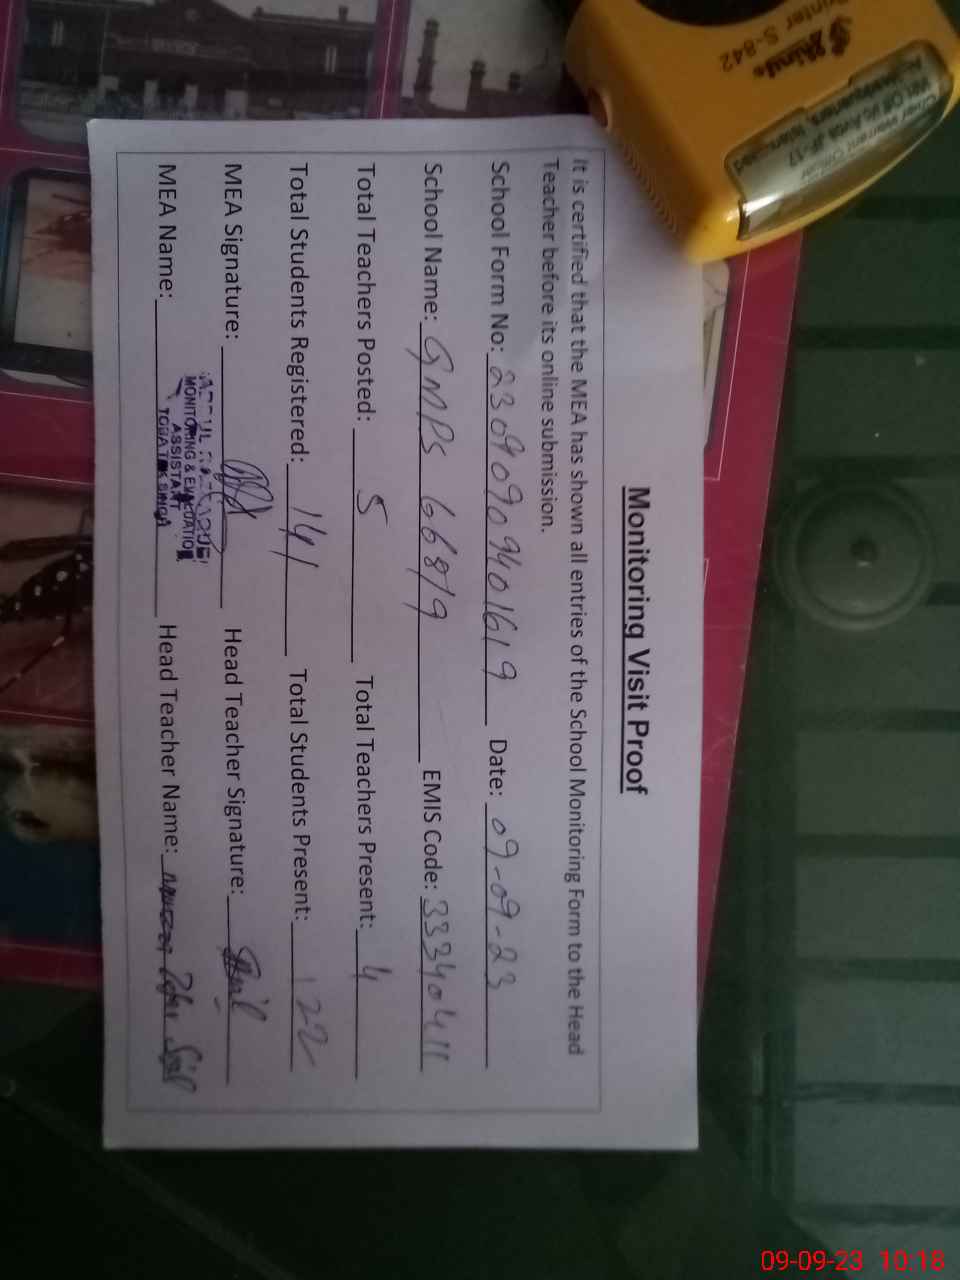 Monitoring Visit Proof
It is certified that the MEA has shown all entries of the School Monitoring Form to the Head
Teacher before its online submission.
School Form No: 23090909401619 Date: 09-09-23
School Name: GMPS 668/9 EMIS Code: 33340411
Total Teachers Posted: 5 Total Teachers Present: 4
Total Students Registered: 141 Total Students Present: 122
MEA Signature: Head Teacher Signature:
MEA Name: Head Teacher Name:
MONITORING & EVALUATION
ASSISTANT
TOBA TEK SINGH
Shiny
Printer S-842
Chief Warrant Officer
09-09-23 10:18